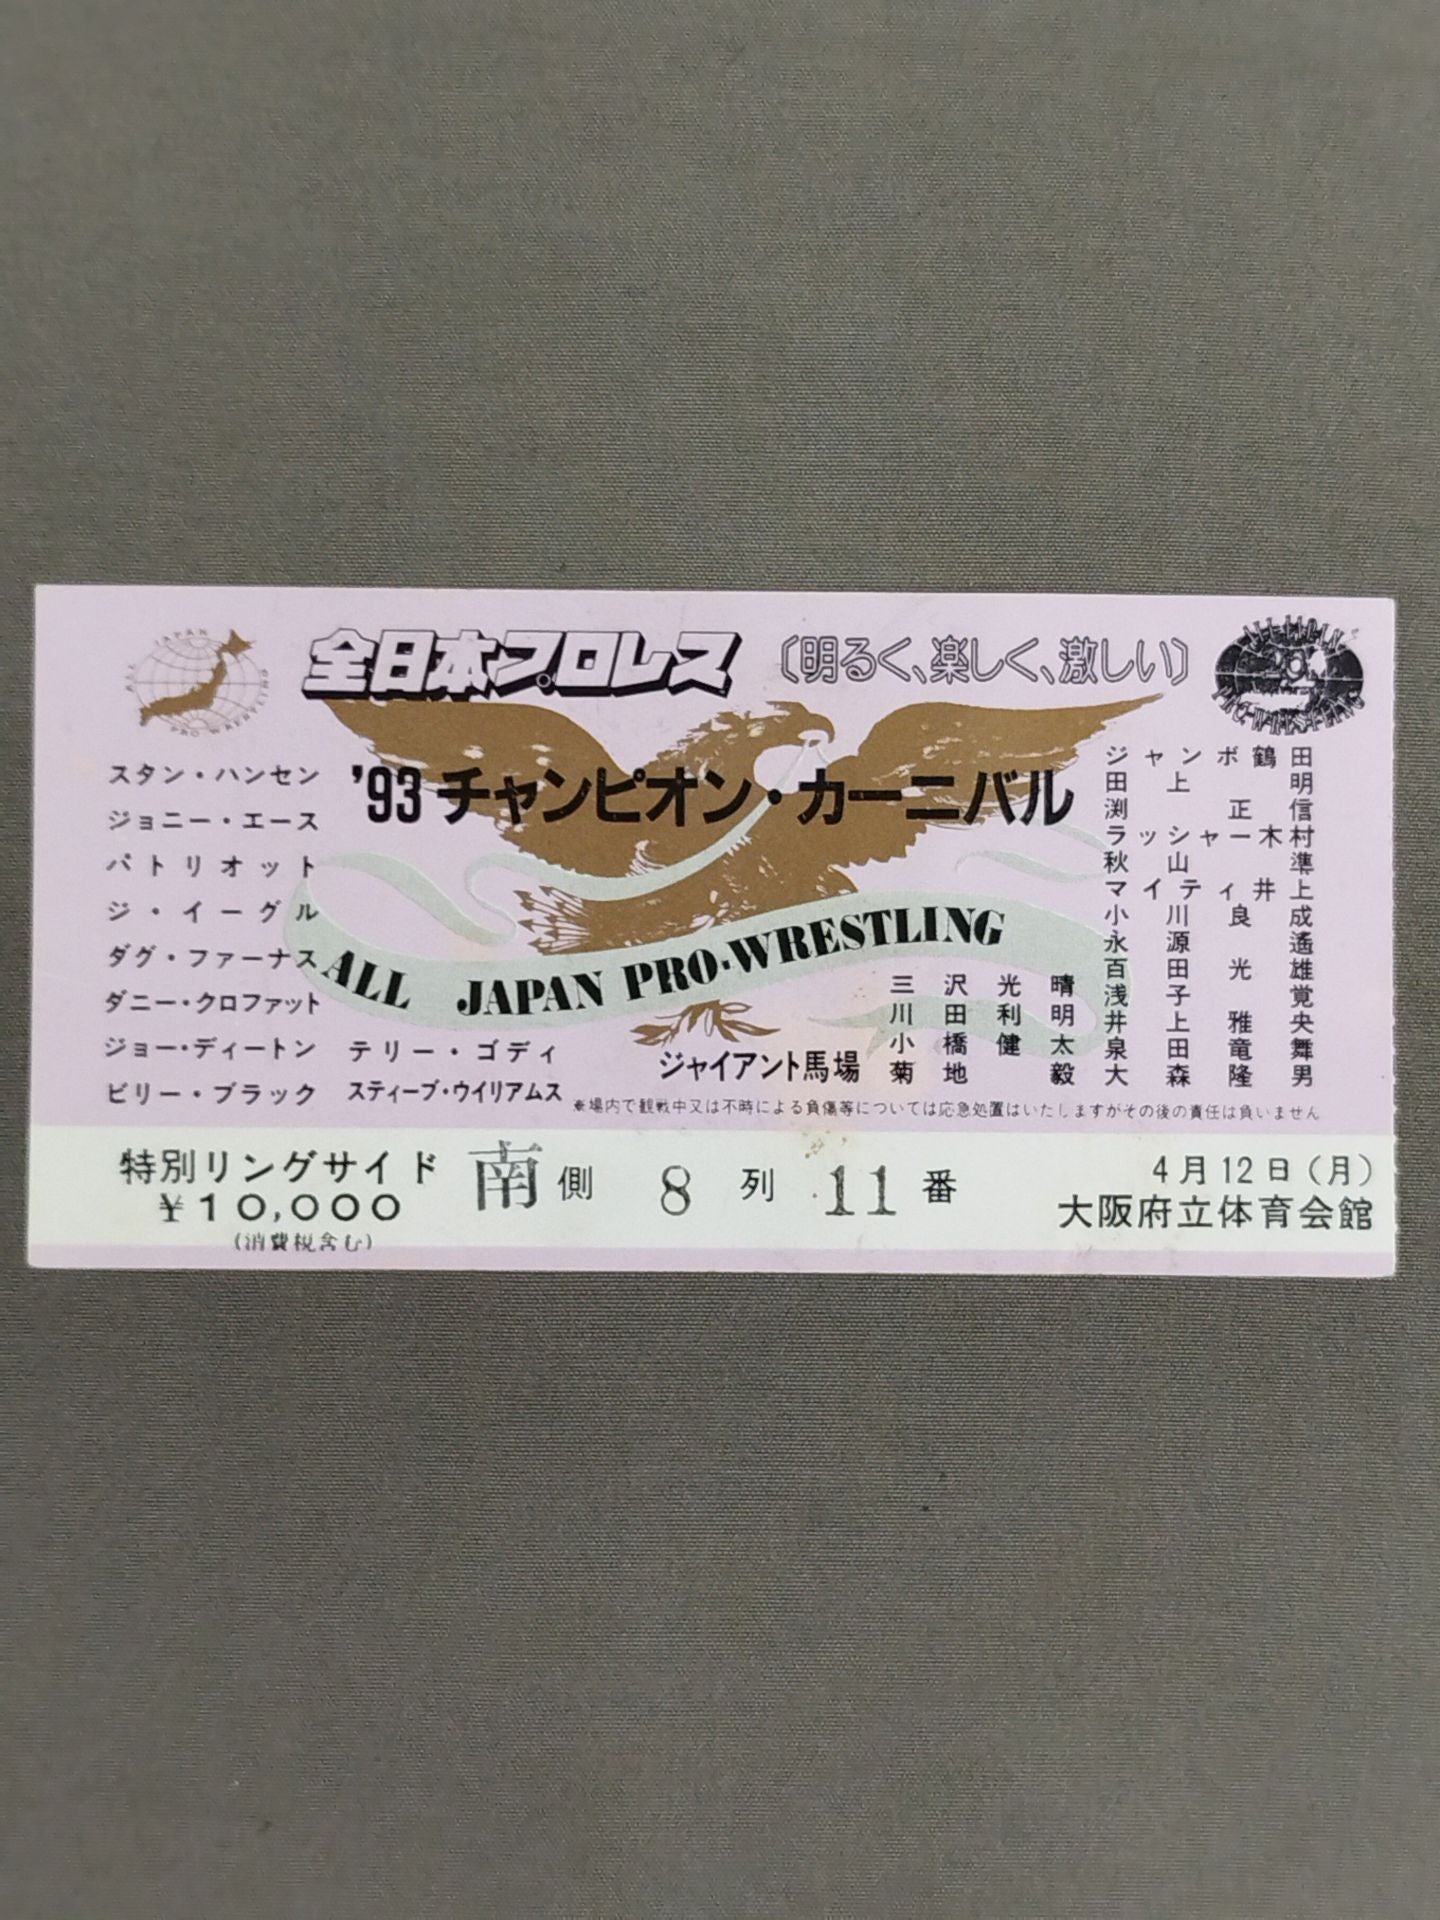 ALL JAPAN PRO-WRESTLING
全日本プロレス
〔明るく、楽しく、激しい〕
'93 チャンピオン・カーニバル
ALL JAPAN PRO-WRESTLING
スタン・ハンセン
ジョニー・エース
パトリオット
ジ・イーグル
ダグ・ファーナス
ダニー・クロファット
ジョー・ディートン
ビリー・ブラック
テリー・ゴディ
スティーブ・ウイリアムス
ジャイアント馬場
三沢光晴
川田利明
小橋健太
菊地毅
ジャンボ鶴田
田上明
渕正信
ラッシャー木村
秋山準
マイティ井上
小川良成
永源遙
百田光雄
浅子覚
井上雅央
泉田竜舞
大森隆男
※場内で観戦中又は不時による負傷等については応急処置はいたしますがその後の責任は負いません
特別リングサイド
¥10,000
(消費税含む)
南側 8列 11番
4月12日(月)
大阪府立体育会館